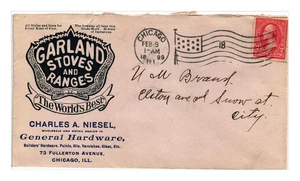 All Styles and Sizes for Every Kind of Fuel
The Genuine all bear this Trade-Mark. Beware of Imitations.
GARLAND
STOVES
AND
RANGES
The World's Best
CHARLES A. NIESEL,
WHOLESALE AND RETAIL DEALER IN
General Hardware,
Builders' Hardware, Paints, Oils, Varnishes, Glass, Etc.
73 FULLERTON AVENUE,
CHICAGO, ILL.
CHICAGO
FEB-9
1-AM
99
ILL.
18
U M Brand.
Elston ave & Snow st.
City